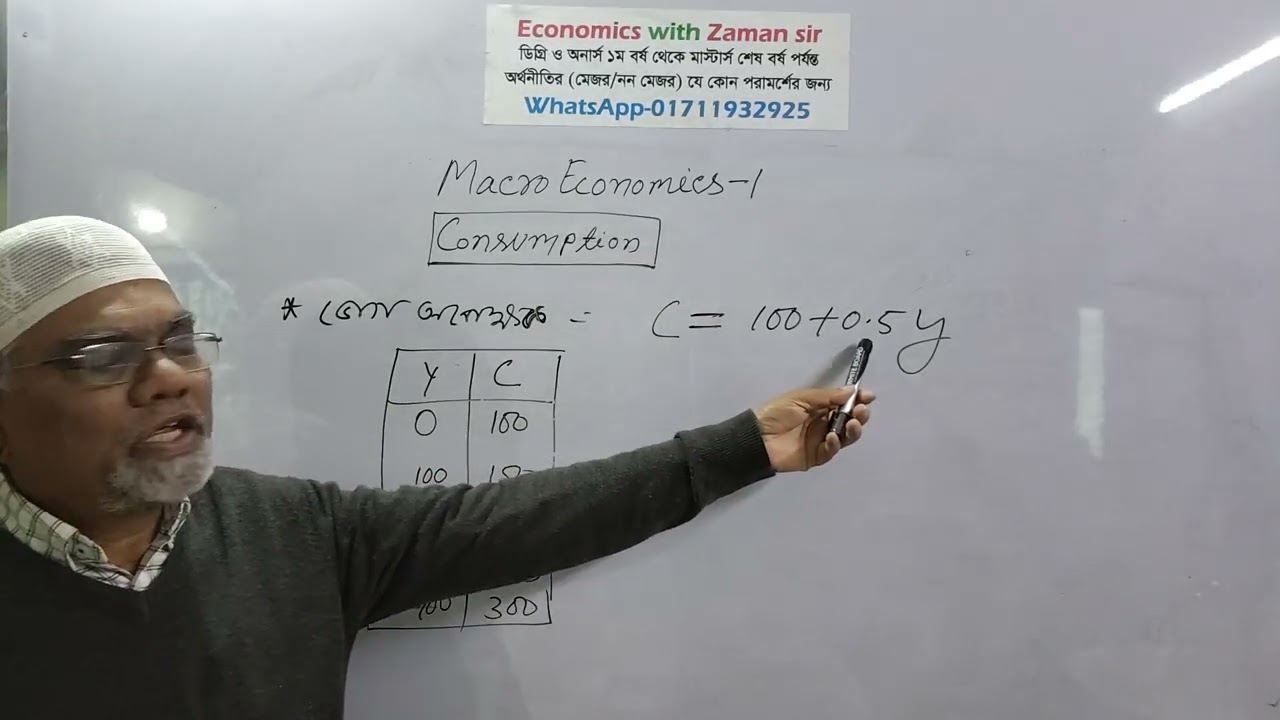 Economics with Zaman sir
ডিগ্রি ও অনার্স ১ম বর্ষ থেকে মাস্টার্স শেষ বর্ষ পর্যন্ত
অর্থনীতির (মেজর/নন মেজর) যে কোন পরামর্শের জন্য
WhatsApp-01711932925
MacroEconomics-1
Consumption
* ভোগ - C = 100+0.5y
Y C
0 100
100
300